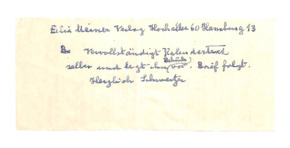 Felix Meiner Verlag Hochallee 60 Hamburg 13
Vervollständigt Kalendertext
selber und legt ihn vor. Brief folgt.
Herzlich Schweitzer